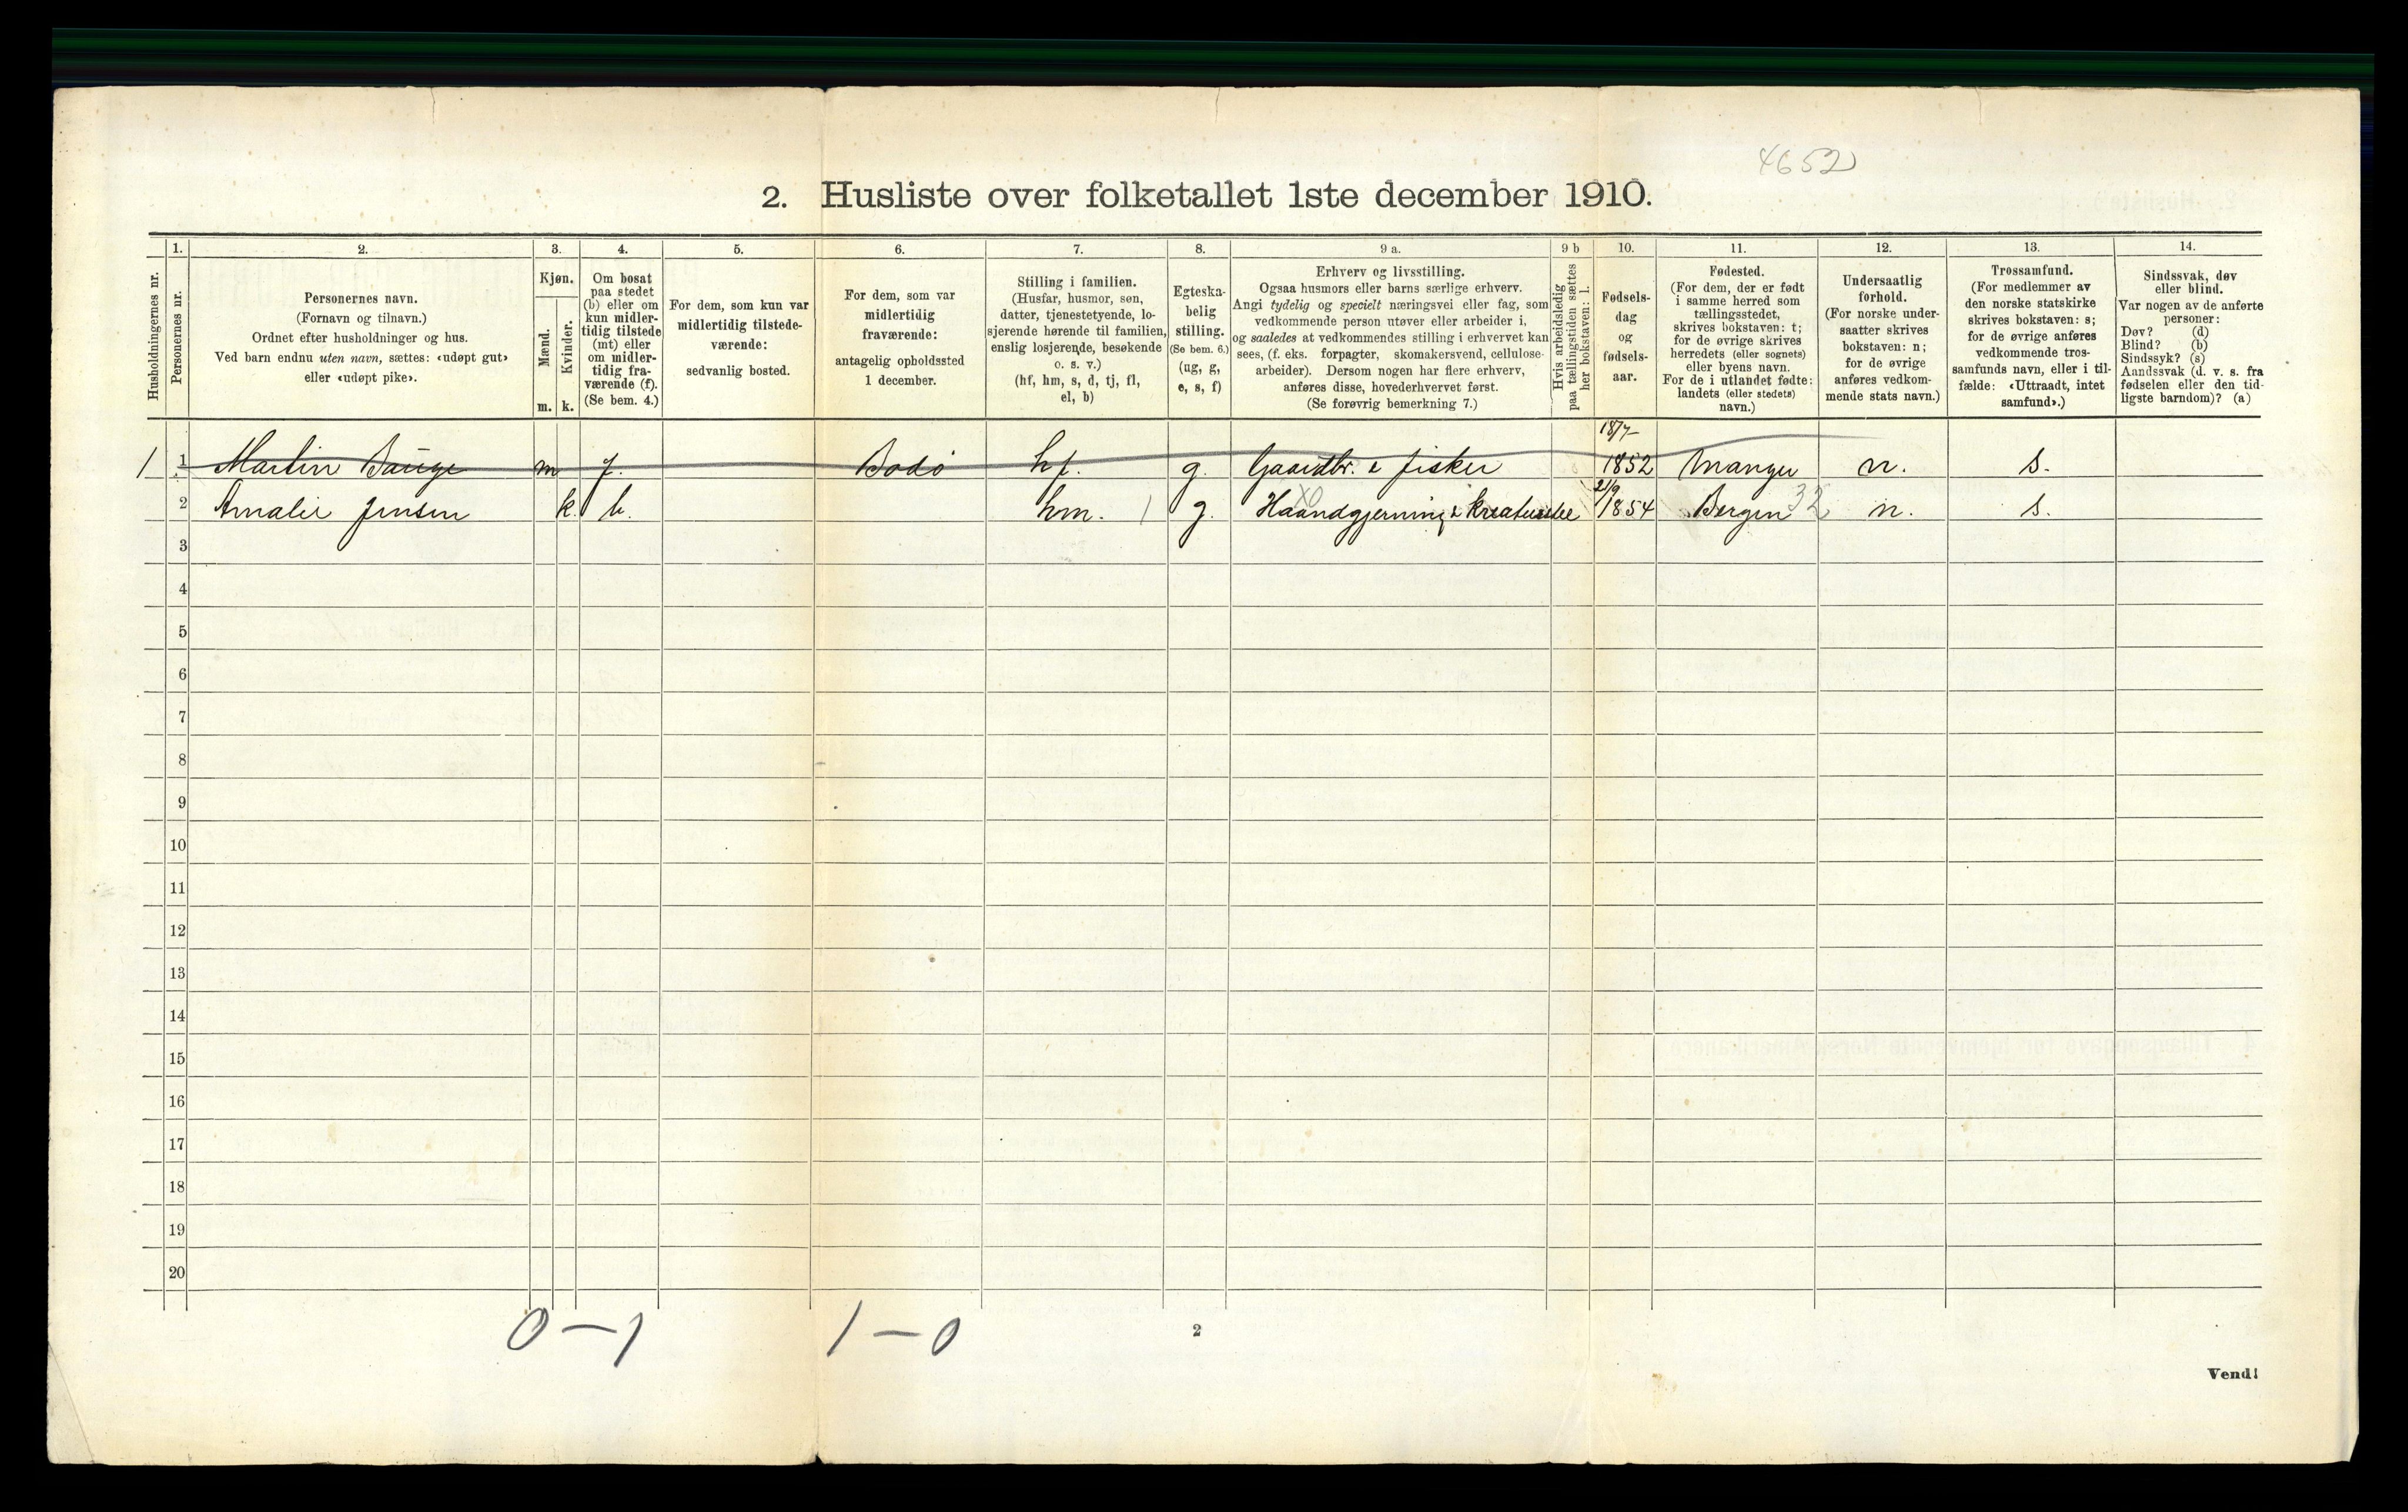 4652
2. Husliste over folketallet 1ste december 1910.
1. 2. 3. 4. 5. 6. 7. 8. 9 a. 9 b 10. 11. 12. 13. 14.
Husholdningernes nr.
Personernes nr.
Personernes navn.
(Fornavn og tilnavn.)
Ordnet efter husholdninger og hus.
Ved barn endnu uten navn, sættes: «udøpt gut»
eller «udøpt pike».
Kjøn.
Mænd.
Kvinder.
m. k.
Om bosat
paa stedet
(b) eller om
kun midler-
tidig tilstede
(mt) eller
om midler-
tidig fra-
værende (f).
(Se bem. 4.)
For dem, som kun var
midlertidig tilstede-
værende:
sedvanlig bosted.
For dem, som var
midlertidig
fraværende:
antagelig opholdssted
1 december.
Stilling i familien.
(Husfar, husmor, søn,
datter, tjenestetyende, lo-
sjerende hørende til familien,
enslig losjerende, besøkende
o. s. v.)
(hf, hm, s, d, tj, fl,
el, b)
Egteska-
belig
stilling.
(Se bem. 6.)
(ug, g,
e, s, f)
Erhverv og livsstilling.
Ogsaa husmors eller barns særlige erhverv.
Angi tydelig og specielt næringsvei eller fag, som
vedkommende person utøver eller arbeider i,
og saaledes at vedkommendes stilling i erhvervet kan
sees, (f. eks. forpagter, skomakersvend, cellulose-
arbeider). Dersom nogen har flere erhverv,
anføres disse, hovederhvervet først.
(Se forøvrig bemerkning 7.)
Hvis arbeidsledig
paa tællingstiden sættes
her bokstaven: l.
Fødsels-
dag
og
fødsels-
aar.
Fødested.
(For dem, der er født
i samme herred som
tællingsstedet,
skrives bokstaven: t;
for de øvrige skrives
herredets (eller sognets)
eller byens navn.
For de i utlandet fødte:
landets (eller stedets)
navn.)
Undersaatlig
forhold.
(For norske under-
saatter skrives
bokstaven: n;
for de øvrige
anføres vedkom-
mende stats navn.)
Trossamfund.
(For medlemmer av
den norske statskirke
skrives bokstaven: s;
for de øvrige anføres
vedkommende tros-
samfunds navn, eller i til-
fælde: «Uttraadt, intet
samfund».)
Sindssvak, døv
eller blind.
Var nogen av de anførte
personer:
Døv? (d)
Blind? (b)
Sindssyk? (s)
Aandssvak (d. v. s. fra
fødselen eller den tid-
ligste barndom)? (a)
18/7-
1 1 Martin Bauge m f. Bodö hf. g. Gaardbr. & fisker 1852 Manger n. s.
21/9
2 Amalie Jensen k. b. hm. 1 g. Haandgjerning & kreaturstel X0 1854 Bergen 32 n. s.
3
4
5
6
7
8
9
10
11
12
13
14
15
16
17
18
19
20
0 – 1 1 – 0
2
Vend!